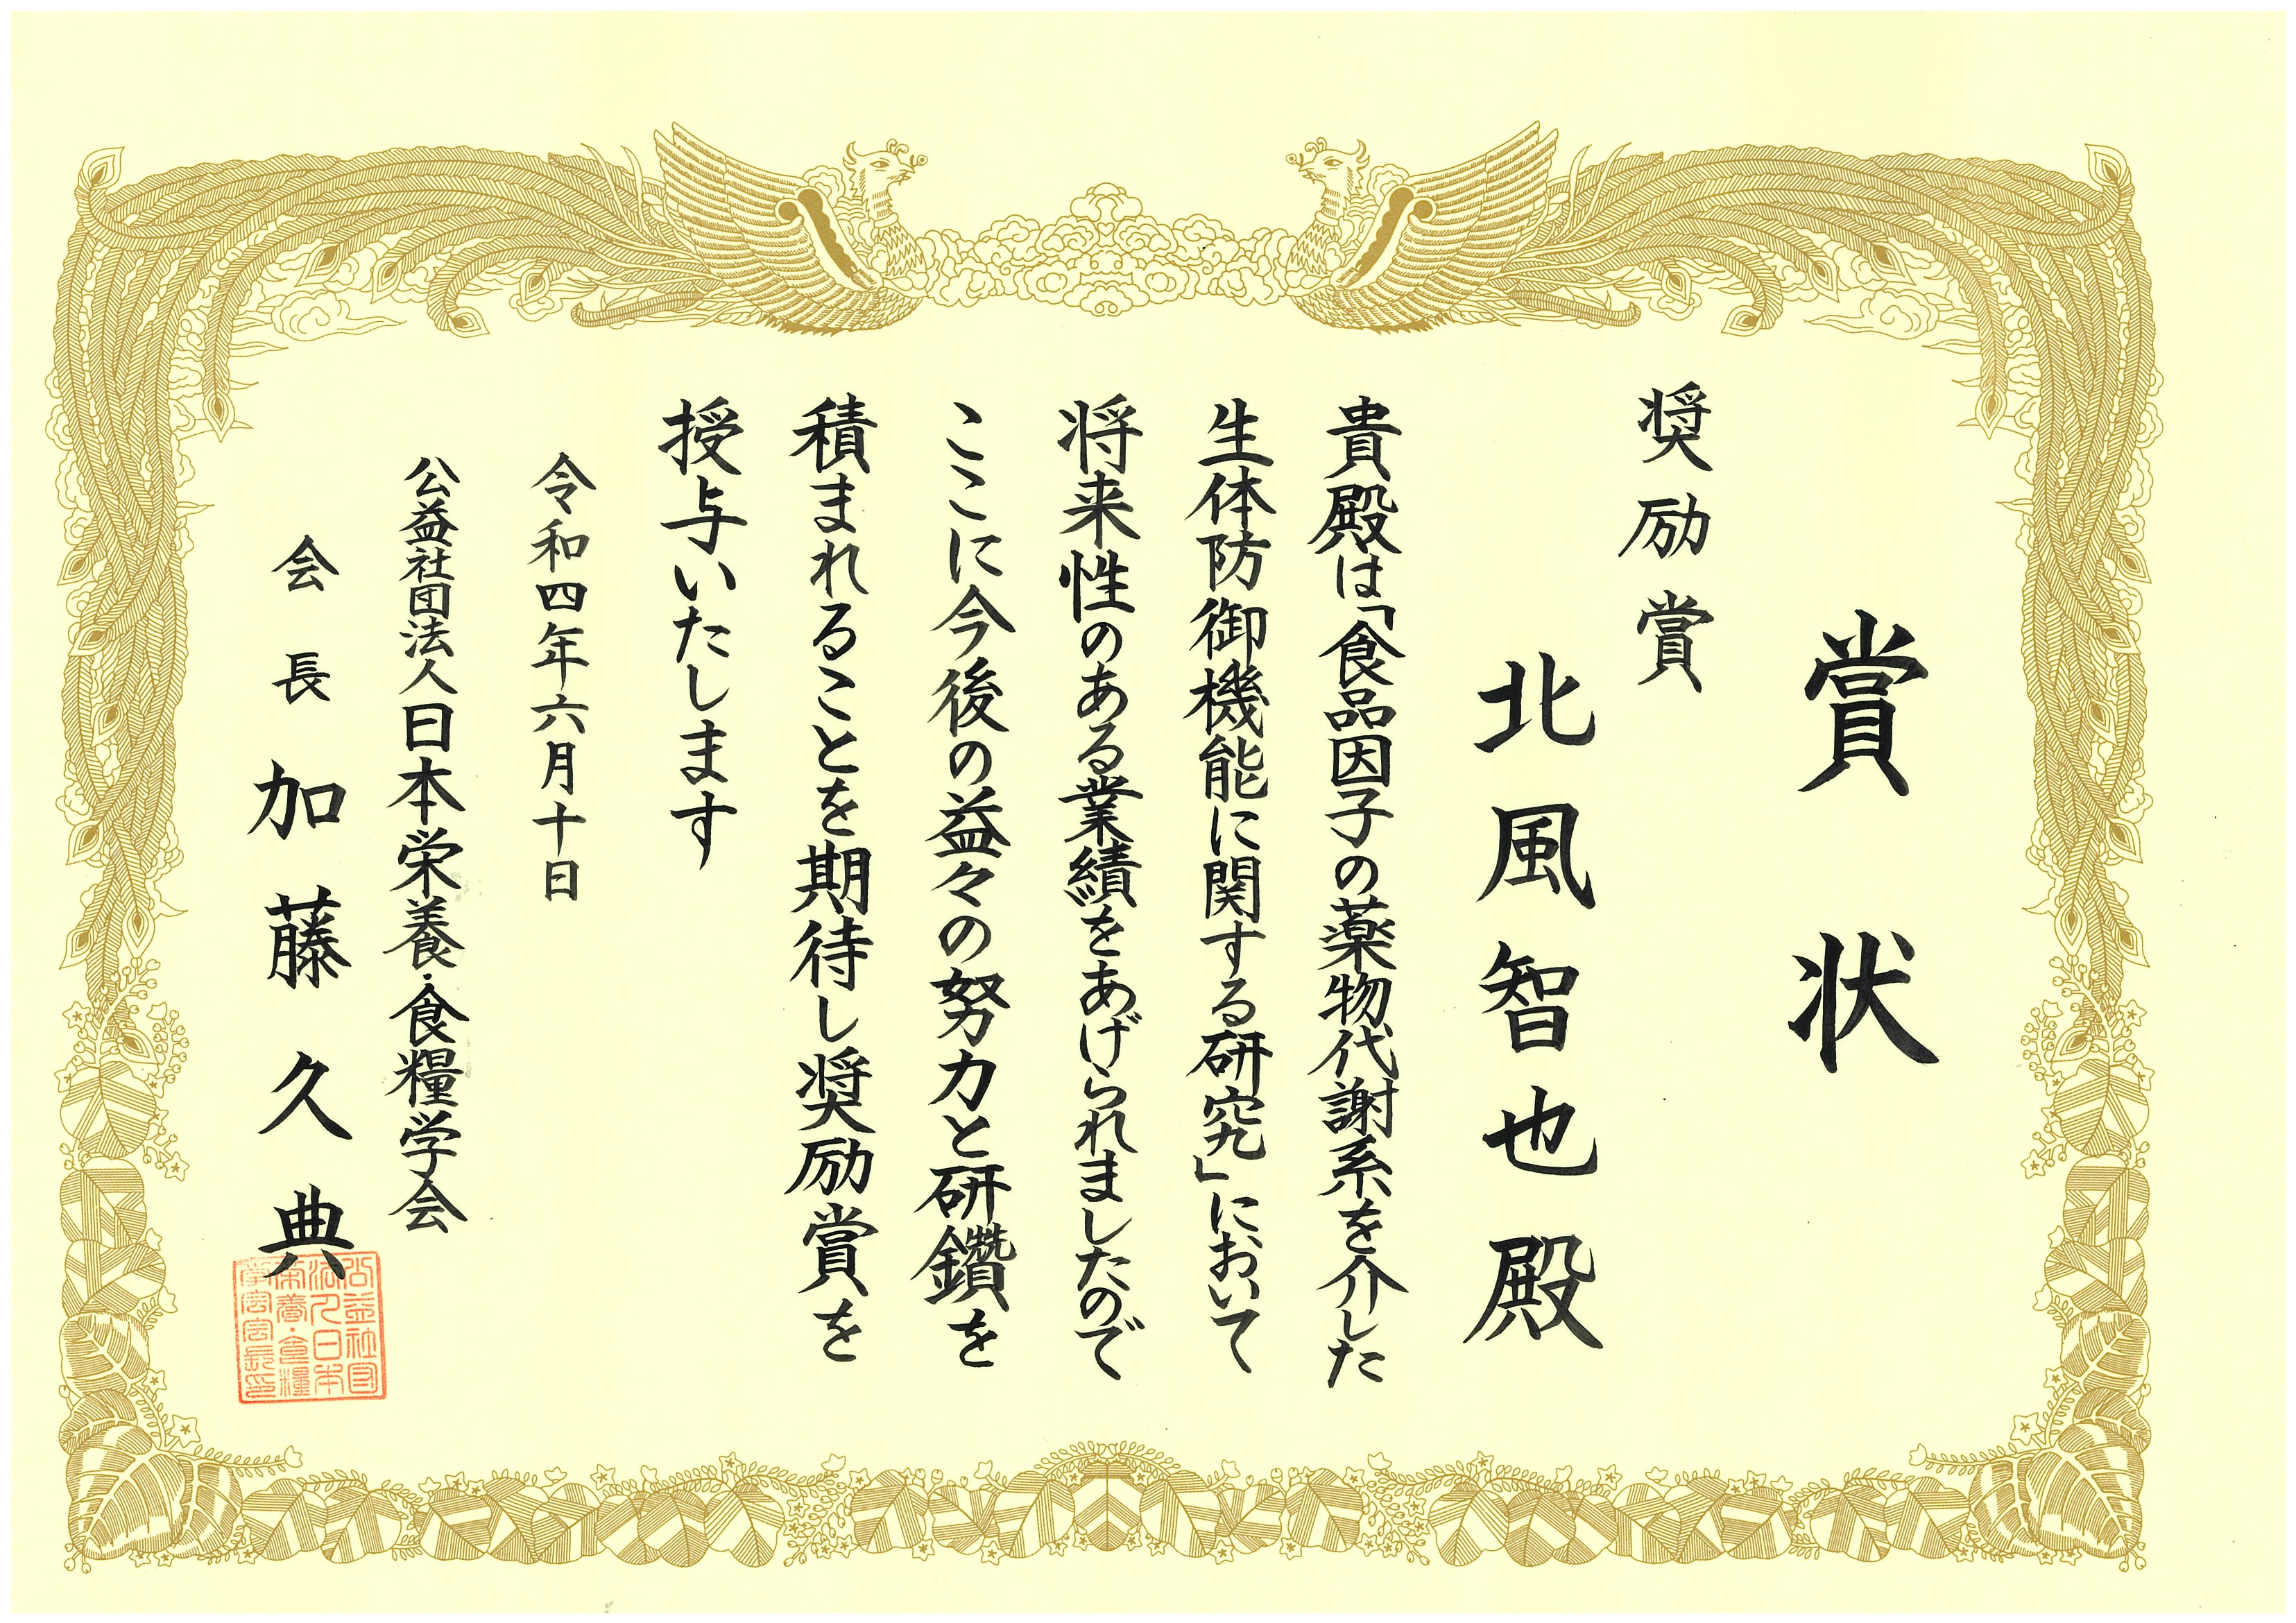 賞状
奨励賞
北風智也殿
貴殿は「食品因子の薬物代謝系を介した
生体防御機能に関する研究」において
将来性のある業績をあげられましたので
ここに今後の益々の努力と研鑽を
積まれることを期待し奨励賞を
授与いたします
令和四年六月十日
公益社団法人日本栄養・食糧学会
会長 加藤久典
公益社団
法人日本
栄養・食糧
学会会長印